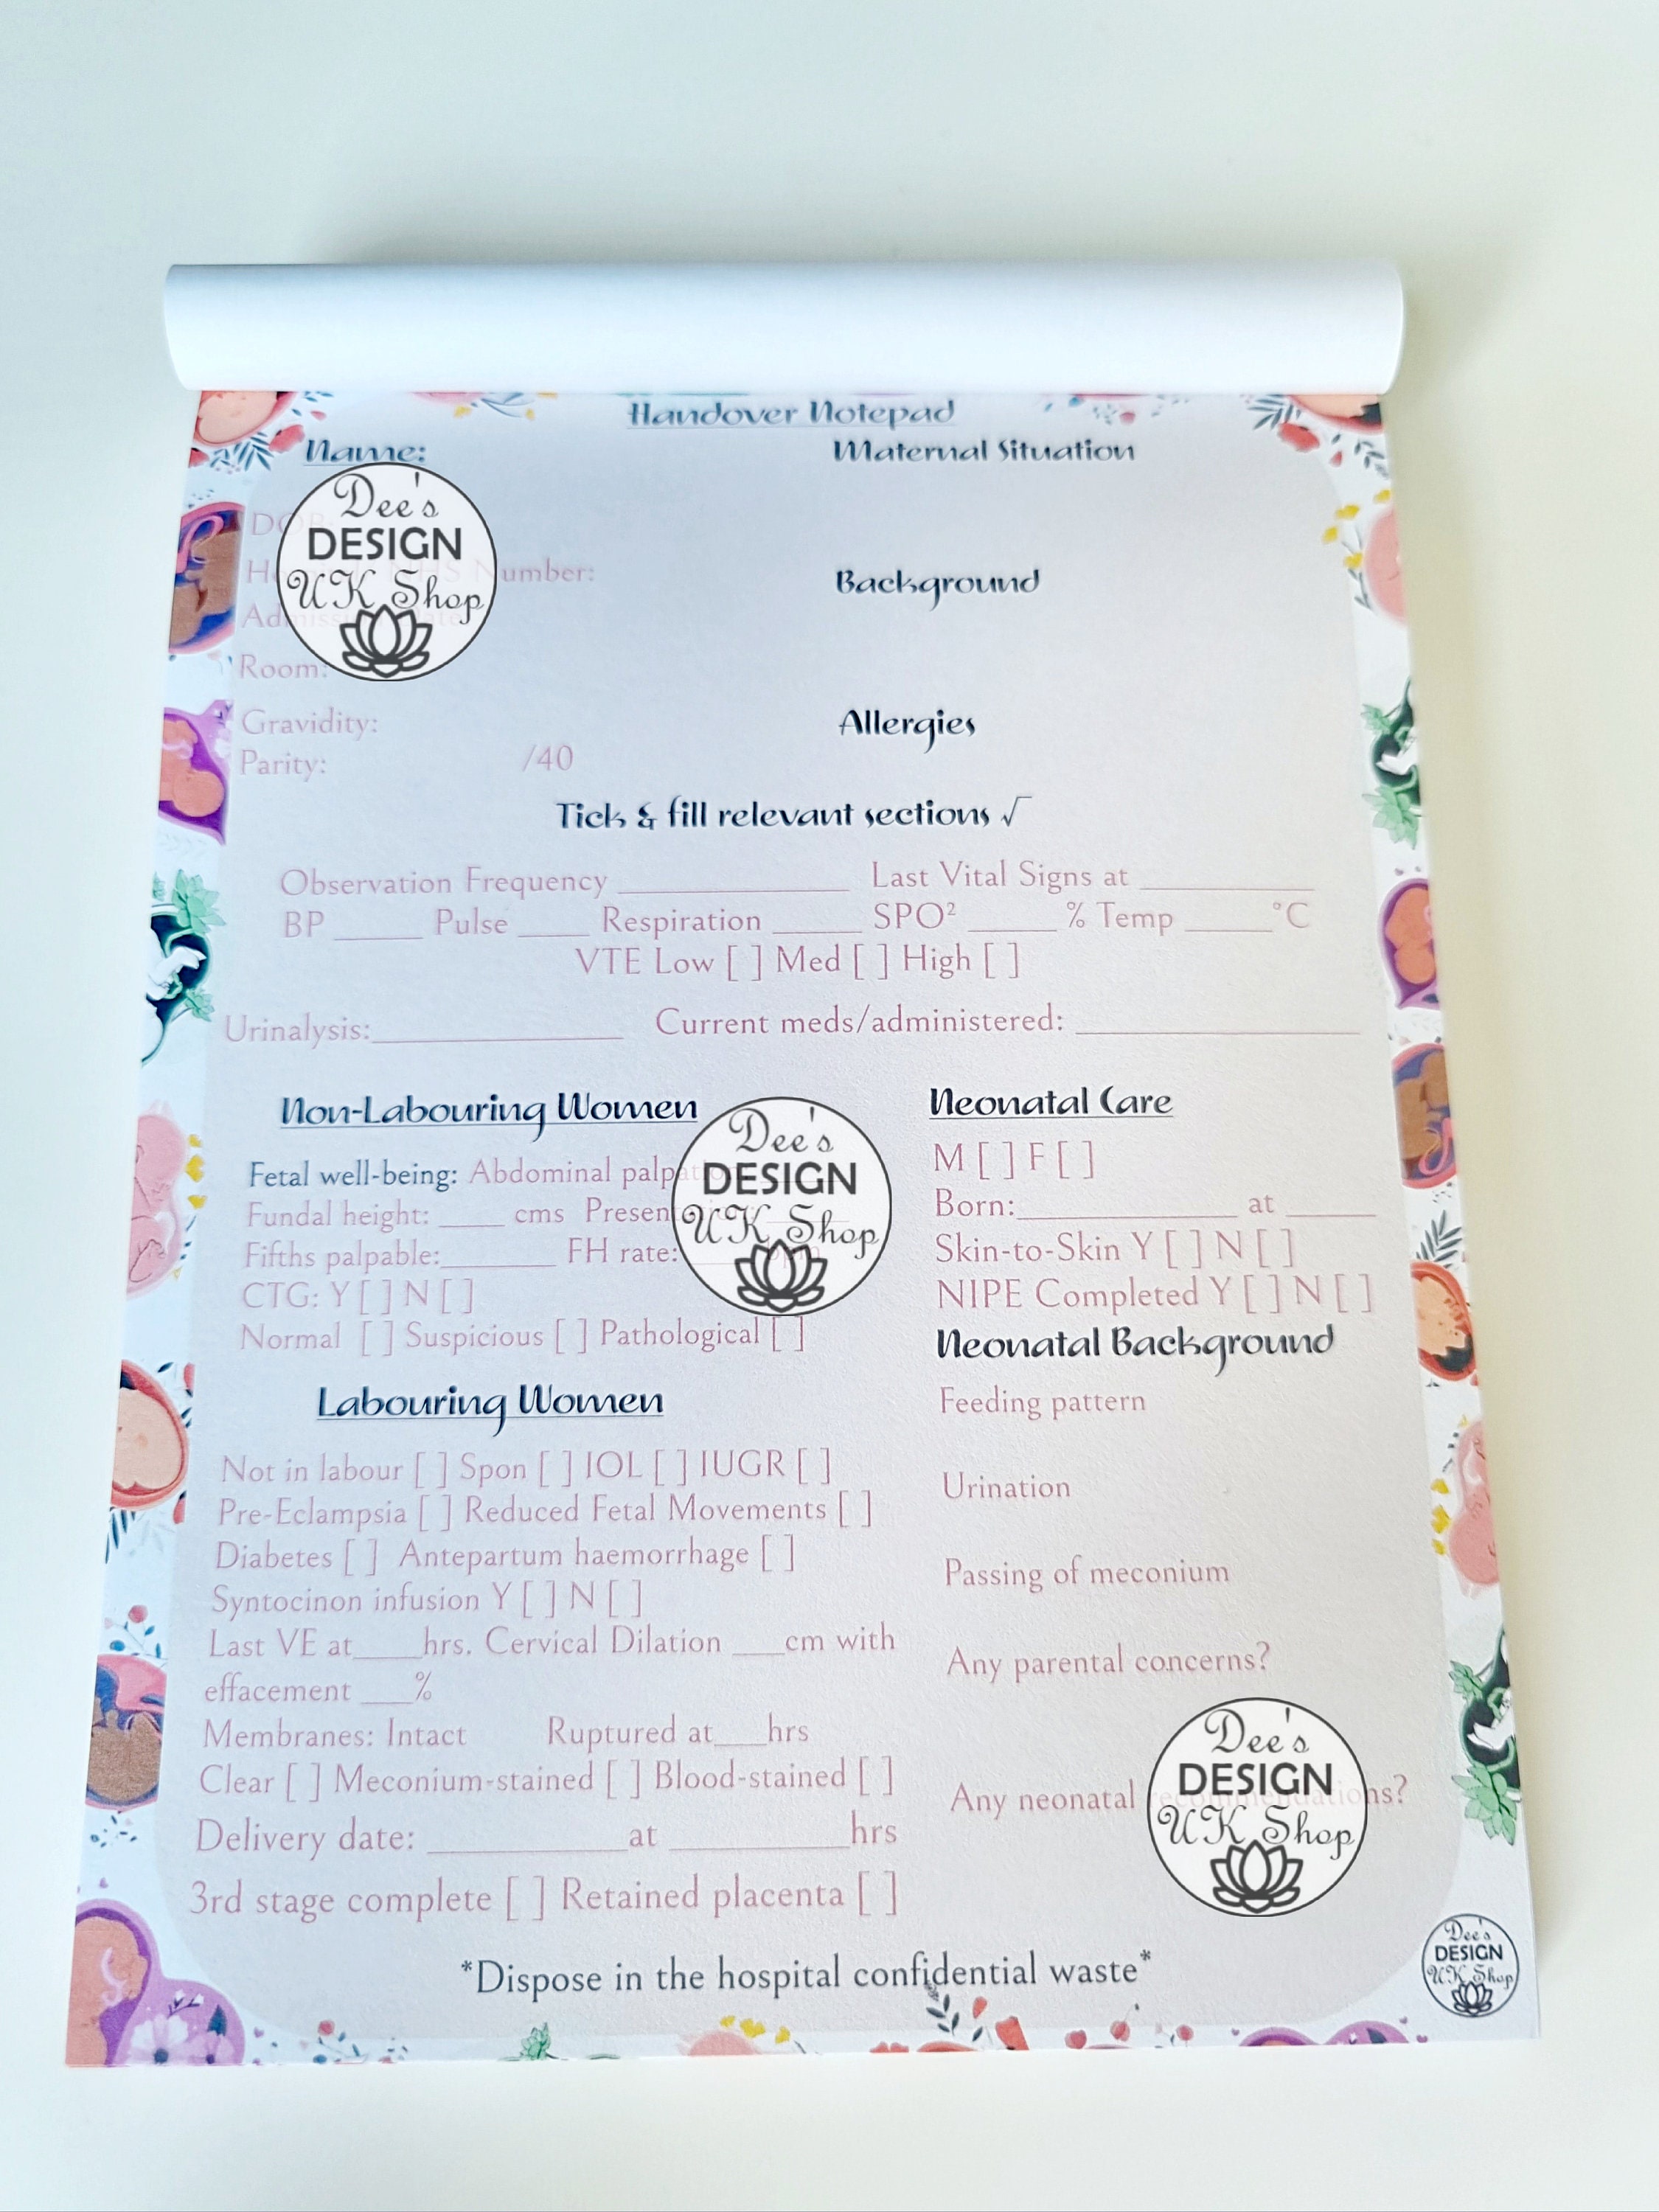 Handover Notepad
Name:
Maternal Situation
DOB:
Number:
Background
Room:
Gravidity:
Allergies
Parity: /40
Tick & fill relevant sections √
Observation Frequency ______ Last Vital Signs at ______
BP ____ Pulse ____ Respiration ____ SPO² ____ % Temp ____ °C
VTE Low [ ] Med [ ] High [ ]
Urinalysis:______ Current meds/administered: ______
Non-Labouring Women
Fetal well-being: Abdominal
Fundal height: ____ cms
Fifths palpable:____ FH rate:
CTG: Y [ ] N [ ]
Normal [ ] Suspicious [ ] Pathological [ ]
Labouring Women
Not in labour [ ] Spon [ ] IOL [ ] IUGR [ ]
Pre-Eclampsia [ ] Reduced Fetal Movements [ ]
Diabetes [ ] Antepartum haemorrhage [ ]
Syntocinon infusion Y [ ] N [ ]
Last VE at____hrs. Cervical Dilation ___cm with
effacement ___%
Membranes: Intact Ruptured at___hrs
Clear [ ] Meconium-stained [ ] Blood-stained [ ]
Delivery date: ______at ______hrs
3rd stage complete [ ] Retained placenta [ ]
Neonatal Care
M [ ] F [ ]
Born:______ at ____
Skin-to-Skin Y [ ] N [ ]
NIPE Completed Y [ ] N [ ]
Neonatal Background
Feeding pattern
Urination
Passing of meconium
Any parental concerns?
Any neonatal recommendations?
*Dispose in the hospital confidential waste*
Dee's
DESIGN
UK Shop
Dee's
DESIGN
UK Shop
Dee's
DESIGN
UK Shop
Dee's
DESIGN
UK Shop